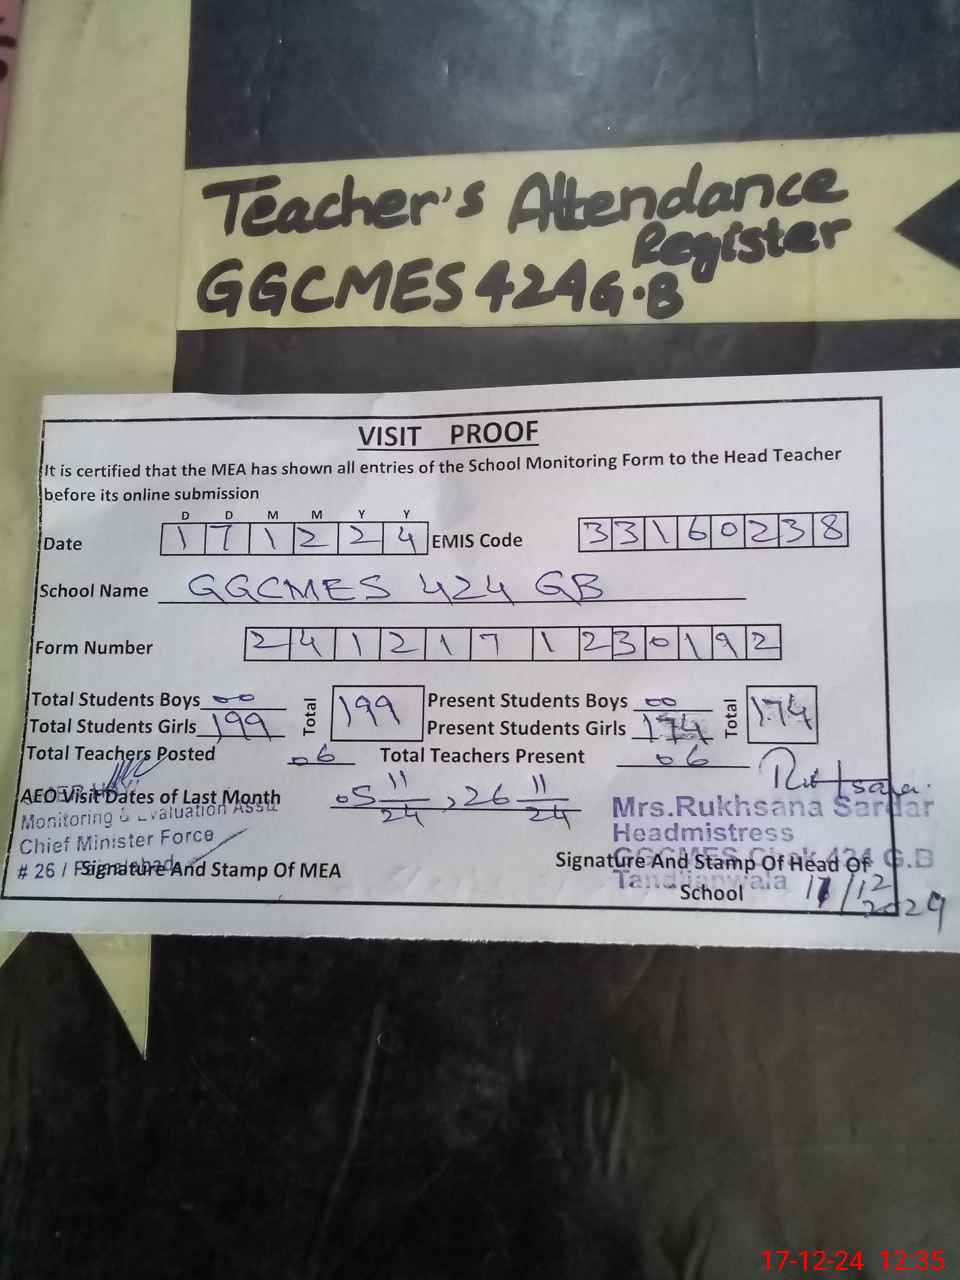 Teacher's Attendance
Register
GGCMES 424 G.B
VISIT PROOF
It is certified that the MEA has shown all entries of the School Monitoring Form to the Head Teacher
before its online submission
D D M M Y Y
Date 1 7 1 2 2 4 EMIS Code 3 3 1 6 0 2 3 8
School Name GGCMES 424 GB
Form Number 2 4 1 2 1 7 1 2 3 0 1 9 2
Total Students Boys 00 Total 199 Present Students Boys 00 Total 174
Total Students Girls 199 Present Students Girls 174
Total Teachers Posted 06 Total Teachers Present 06
AEO Visit Dates of Last Month 05 11/24, 26 11/24
Mrs.Rukhsana Sardar
Monitoring & Evaluation Asstt
Headmistress
Chief Minister Force
GGCMES Chak 424 G.B
# 26 / Faisalabad
Signature And Stamp Of MEA
Signature And Stamp Of Head Of
School
Tandlianwala
17/12
2024
17-12-24 12:35